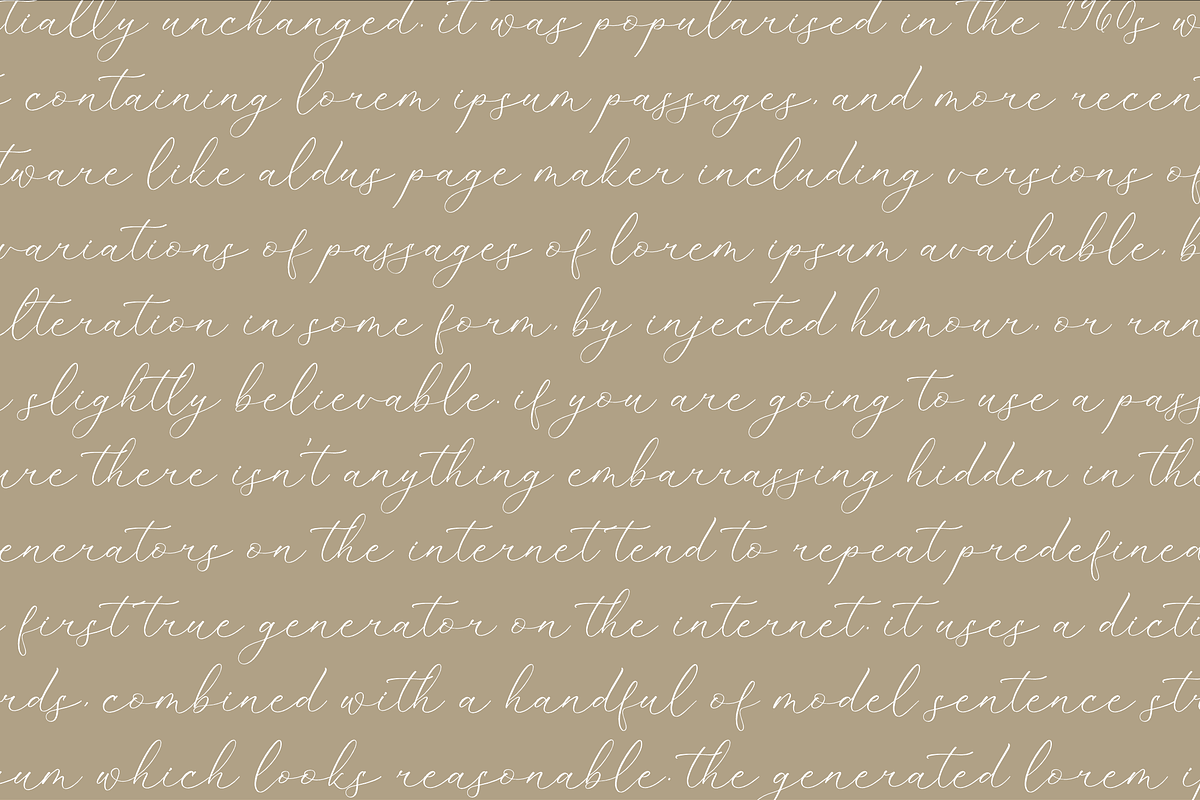 tially unchanged. it was popularised in the 1960s w
containing lorem ipsum passages, and more recen
tware like aldus page maker including versions of
variations of passages of lorem ipsum available, b
lteration in some form, by injected humour, or ran
slightly believable. if you are going to use a pass
ure there isn't anything embarrassing hidden in the
enerators on the internet tend to repeat predefined
first true generator on the internet. it uses a dicti
rds, combined with a handful of model sentence str
sum which looks reasonable. the generated lorem ip